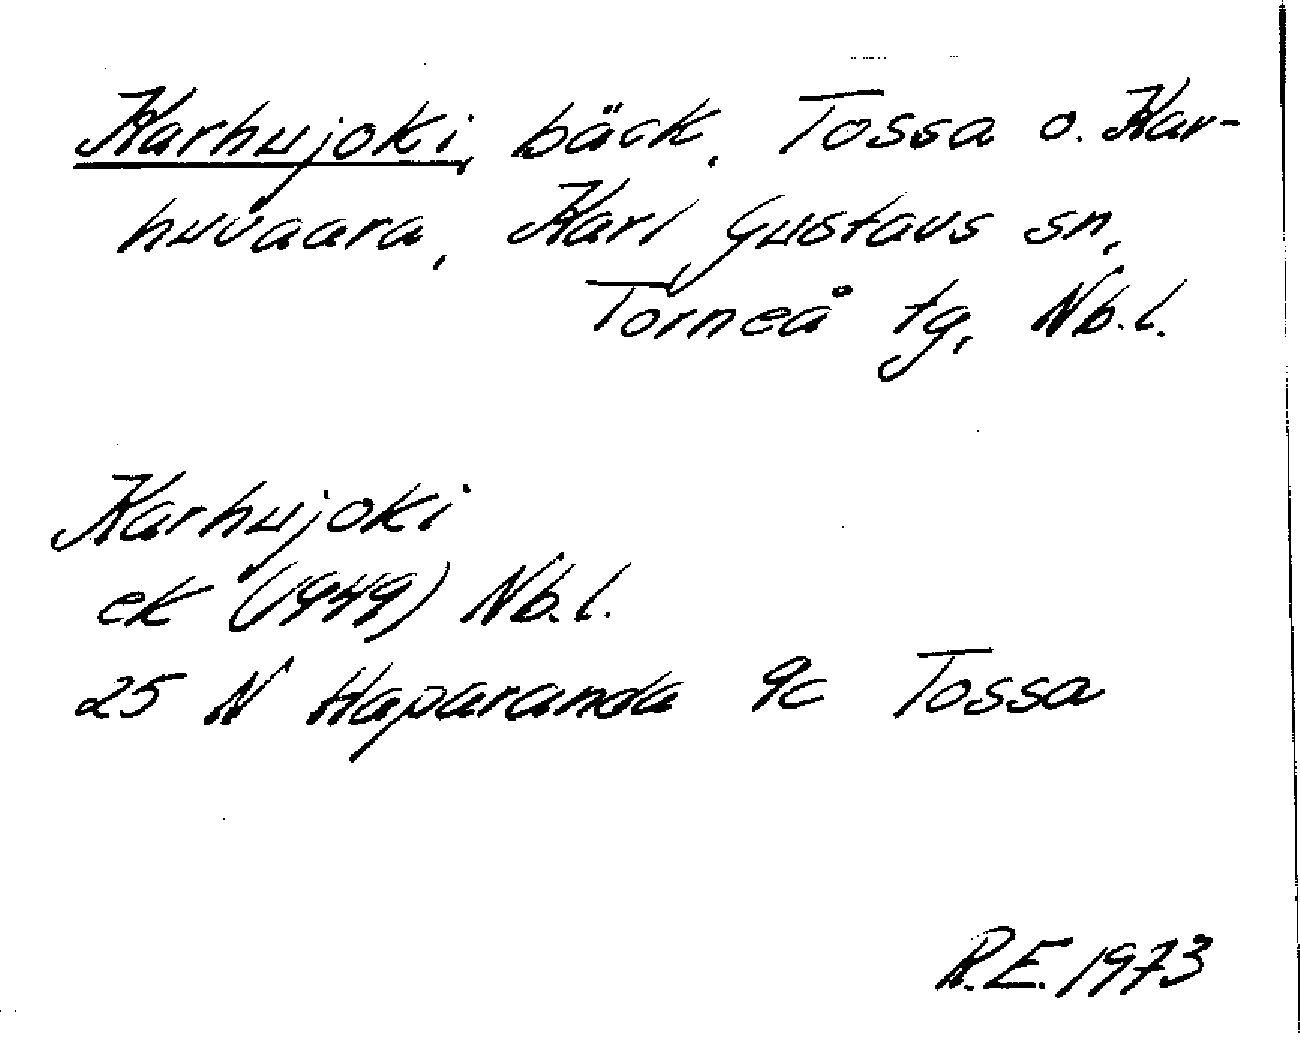 Karhujoki, bäck, Tossa o. Kar-
huvaara, Karl Gustavs sn,
Torneå tg, Nb.l.
Karhujoki
ek (1949) Nb.l.
25 N Haparanda 9c Tossa
R.E. 1973